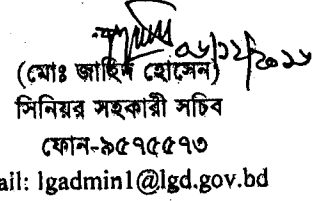 ০৮/১২/২০১৮
(মোঃ জাহিদ হোসেন)
সিনিয়র সহকারী সচিব
ফোন-৯৫৭৫৫৭৩
ail: lgadmin1@lgd.gov.bd